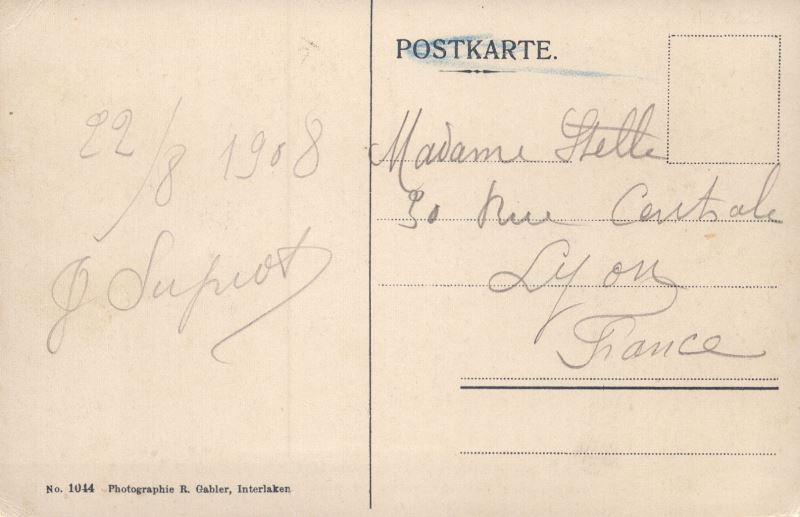 POSTKARTE.
22/8 1908
Madame Stelle
30 Rue Centrale
Lyon
France
No. 1044 Photographie R. Gabler, Interlaken